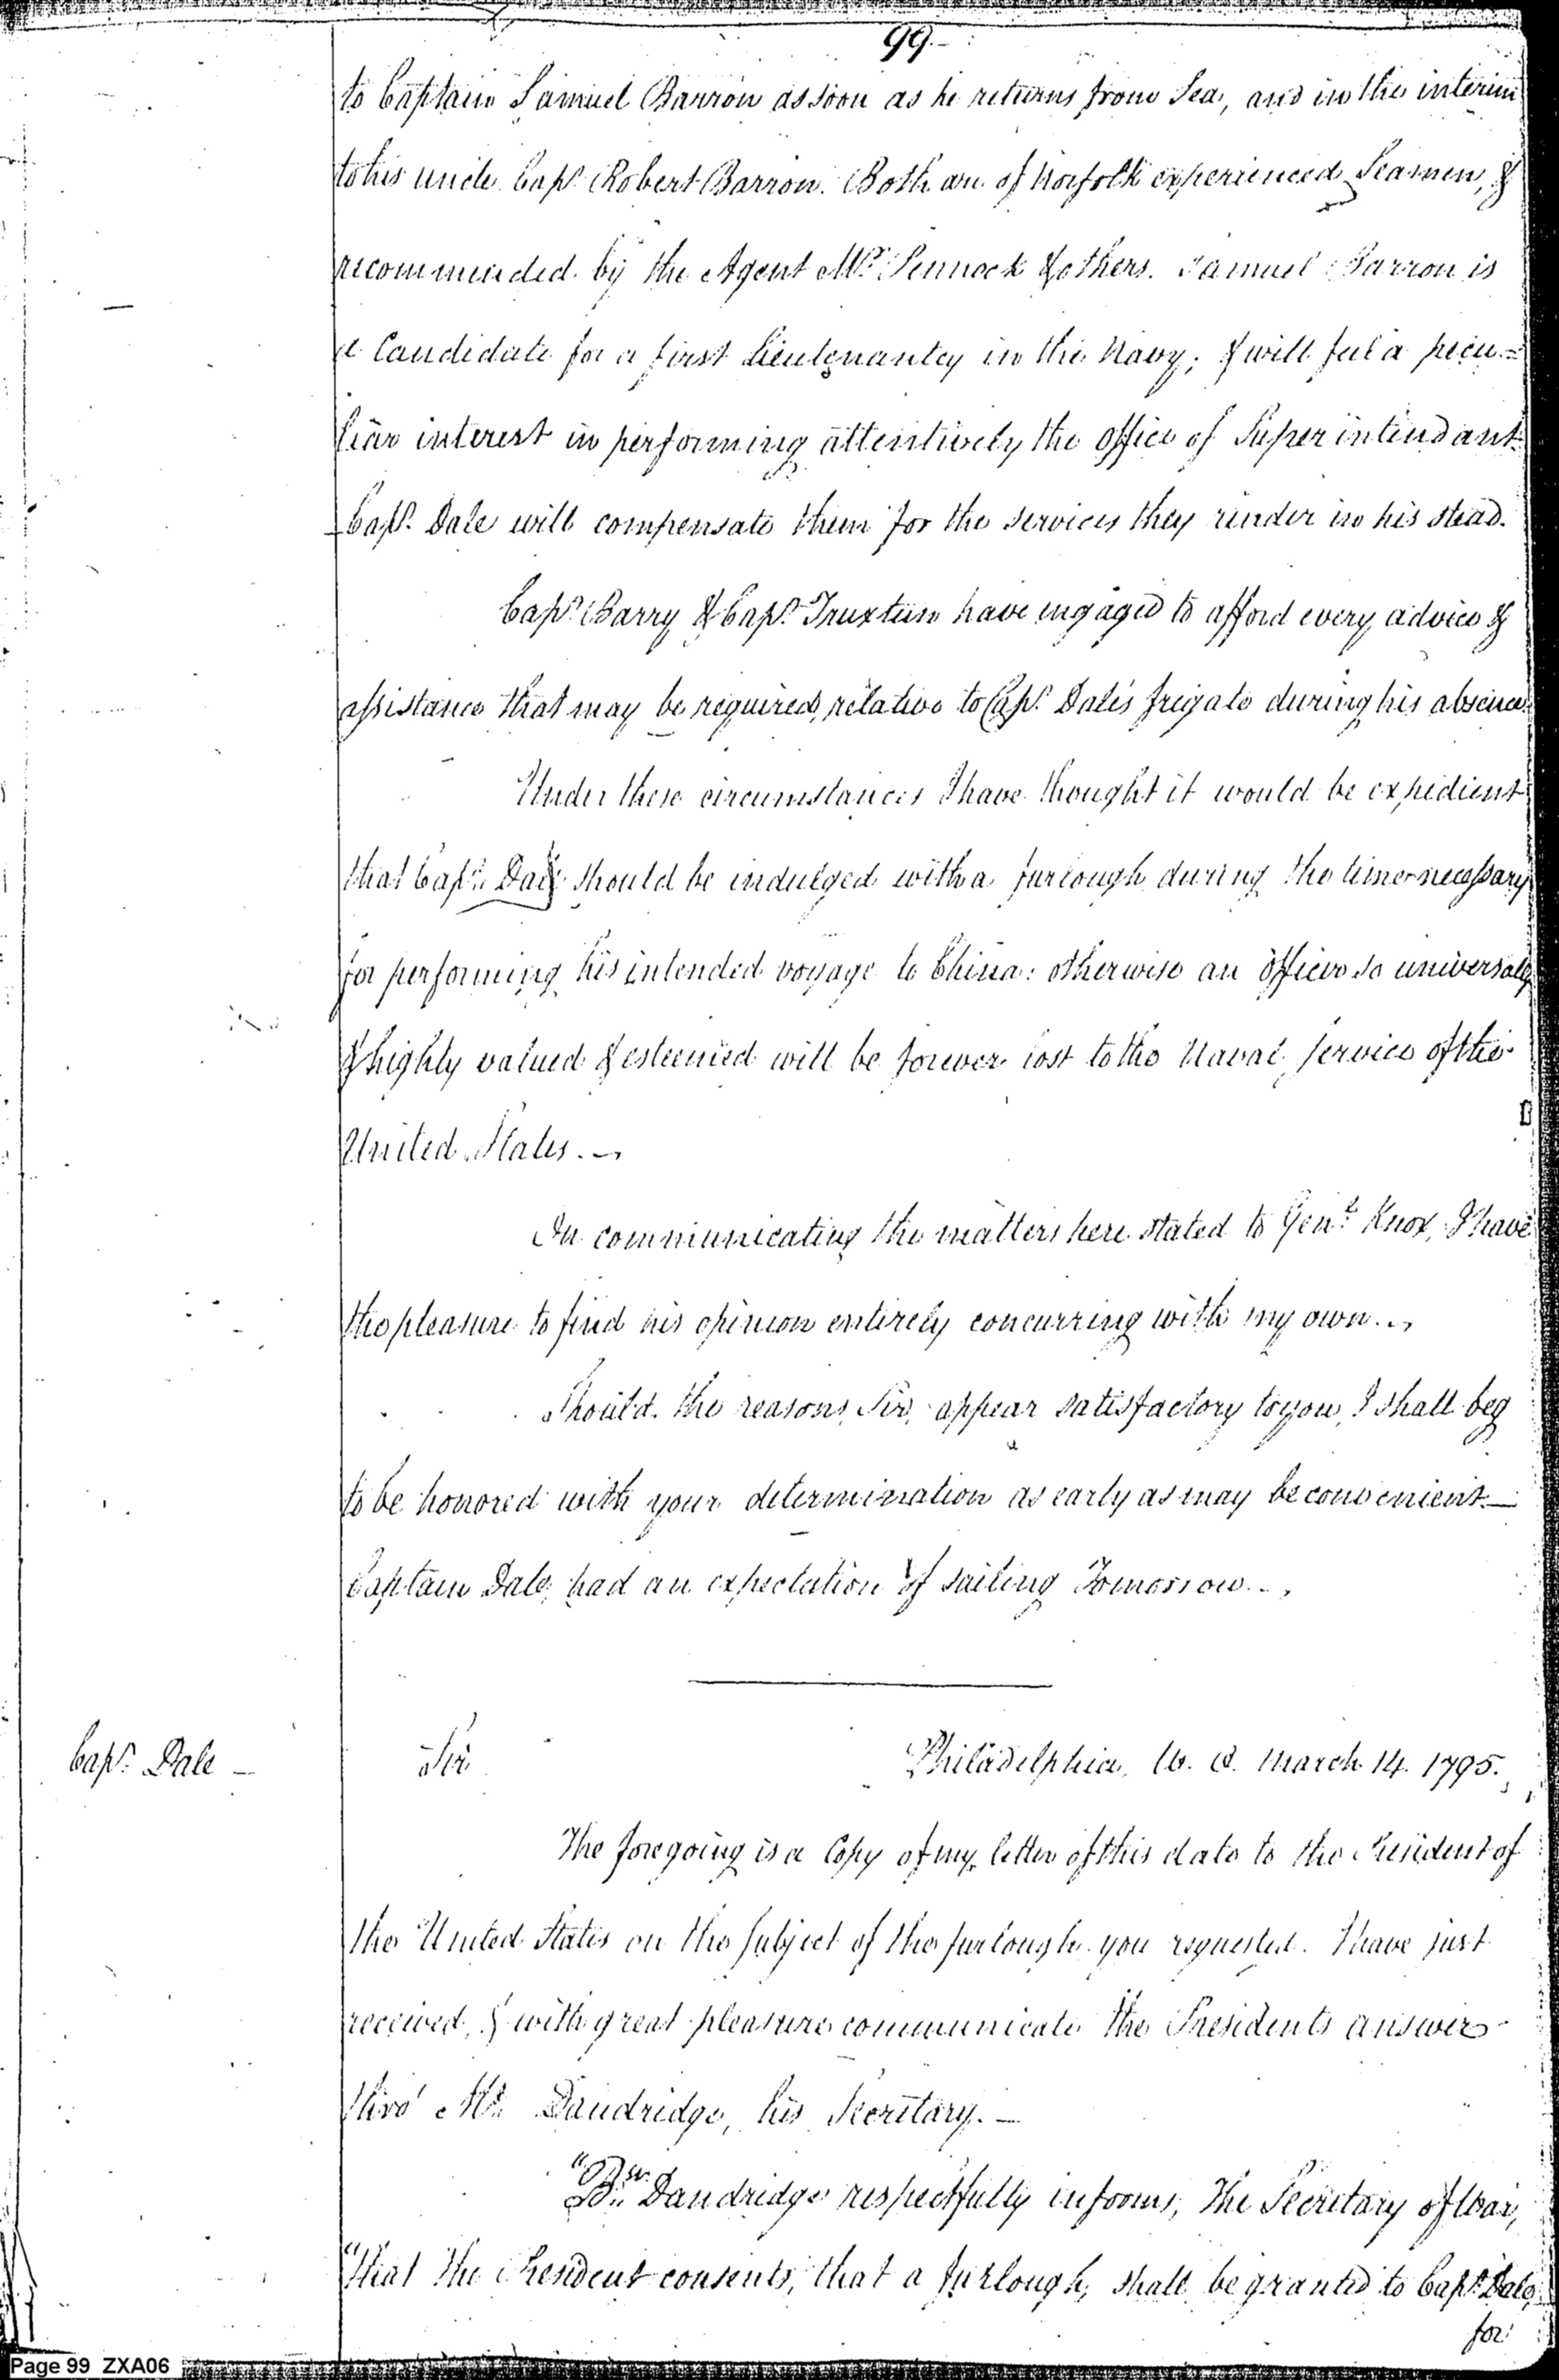 99.-
to Captain Samuel Barron as soon as he returns from Sea, and in the interim
to his uncle Capt. Robert Barron. Both are of Norfolk experienced Seamen, &
recommended by the Agent Mr. Pennock & others. Samuel Barron is
a Candidate for a first Lieutenantcy in the Navy; & will feel a pecu=
liar interest in performing attentively the office of Superintendant
Capt. Dale will compensate them for the services they render in his stead.
Capt. Barry & Capt. Truxtun have engaged to afford every advice &
assistance that may be required, relative to Capt. Dale's frigate during his absence.
Under these circumstances I have thought it would be expedient
that Capt. Dale should be indulged with a furlough during the time necessary
for performing his intended voyage to China: otherwise an officer so universaly
& highly valued & esteemed will be forever lost to the Naval Service of the
United States.—
On communicating the matters here stated to Genl. Knox, I have
the pleasure to find his opinion entirely concurring with my own.—
Should the reasons, Sir, appear satisfactory to you, I shall beg
to be honored with your determination as early as may be convenient.—
Captain Dale, had an expectation of sailing Tomorrow.—
Capt. Dale —
Sir
Philadelphia, W. O. March 14. 1795.
The foregoing is a Copy of my letter of this date to the President of
the United States on the subject of the furlough you requested. I have just
received, & with great pleasure communicate the Presidents answer
thro' Mr. Dandridge, his Secretary.—
"Bw. Dandridge respectfully informs, The Secretary of War,
"that the President consents, that a furlough, shall be granted to Capt. Dale,
for
Page 99 ZXA06